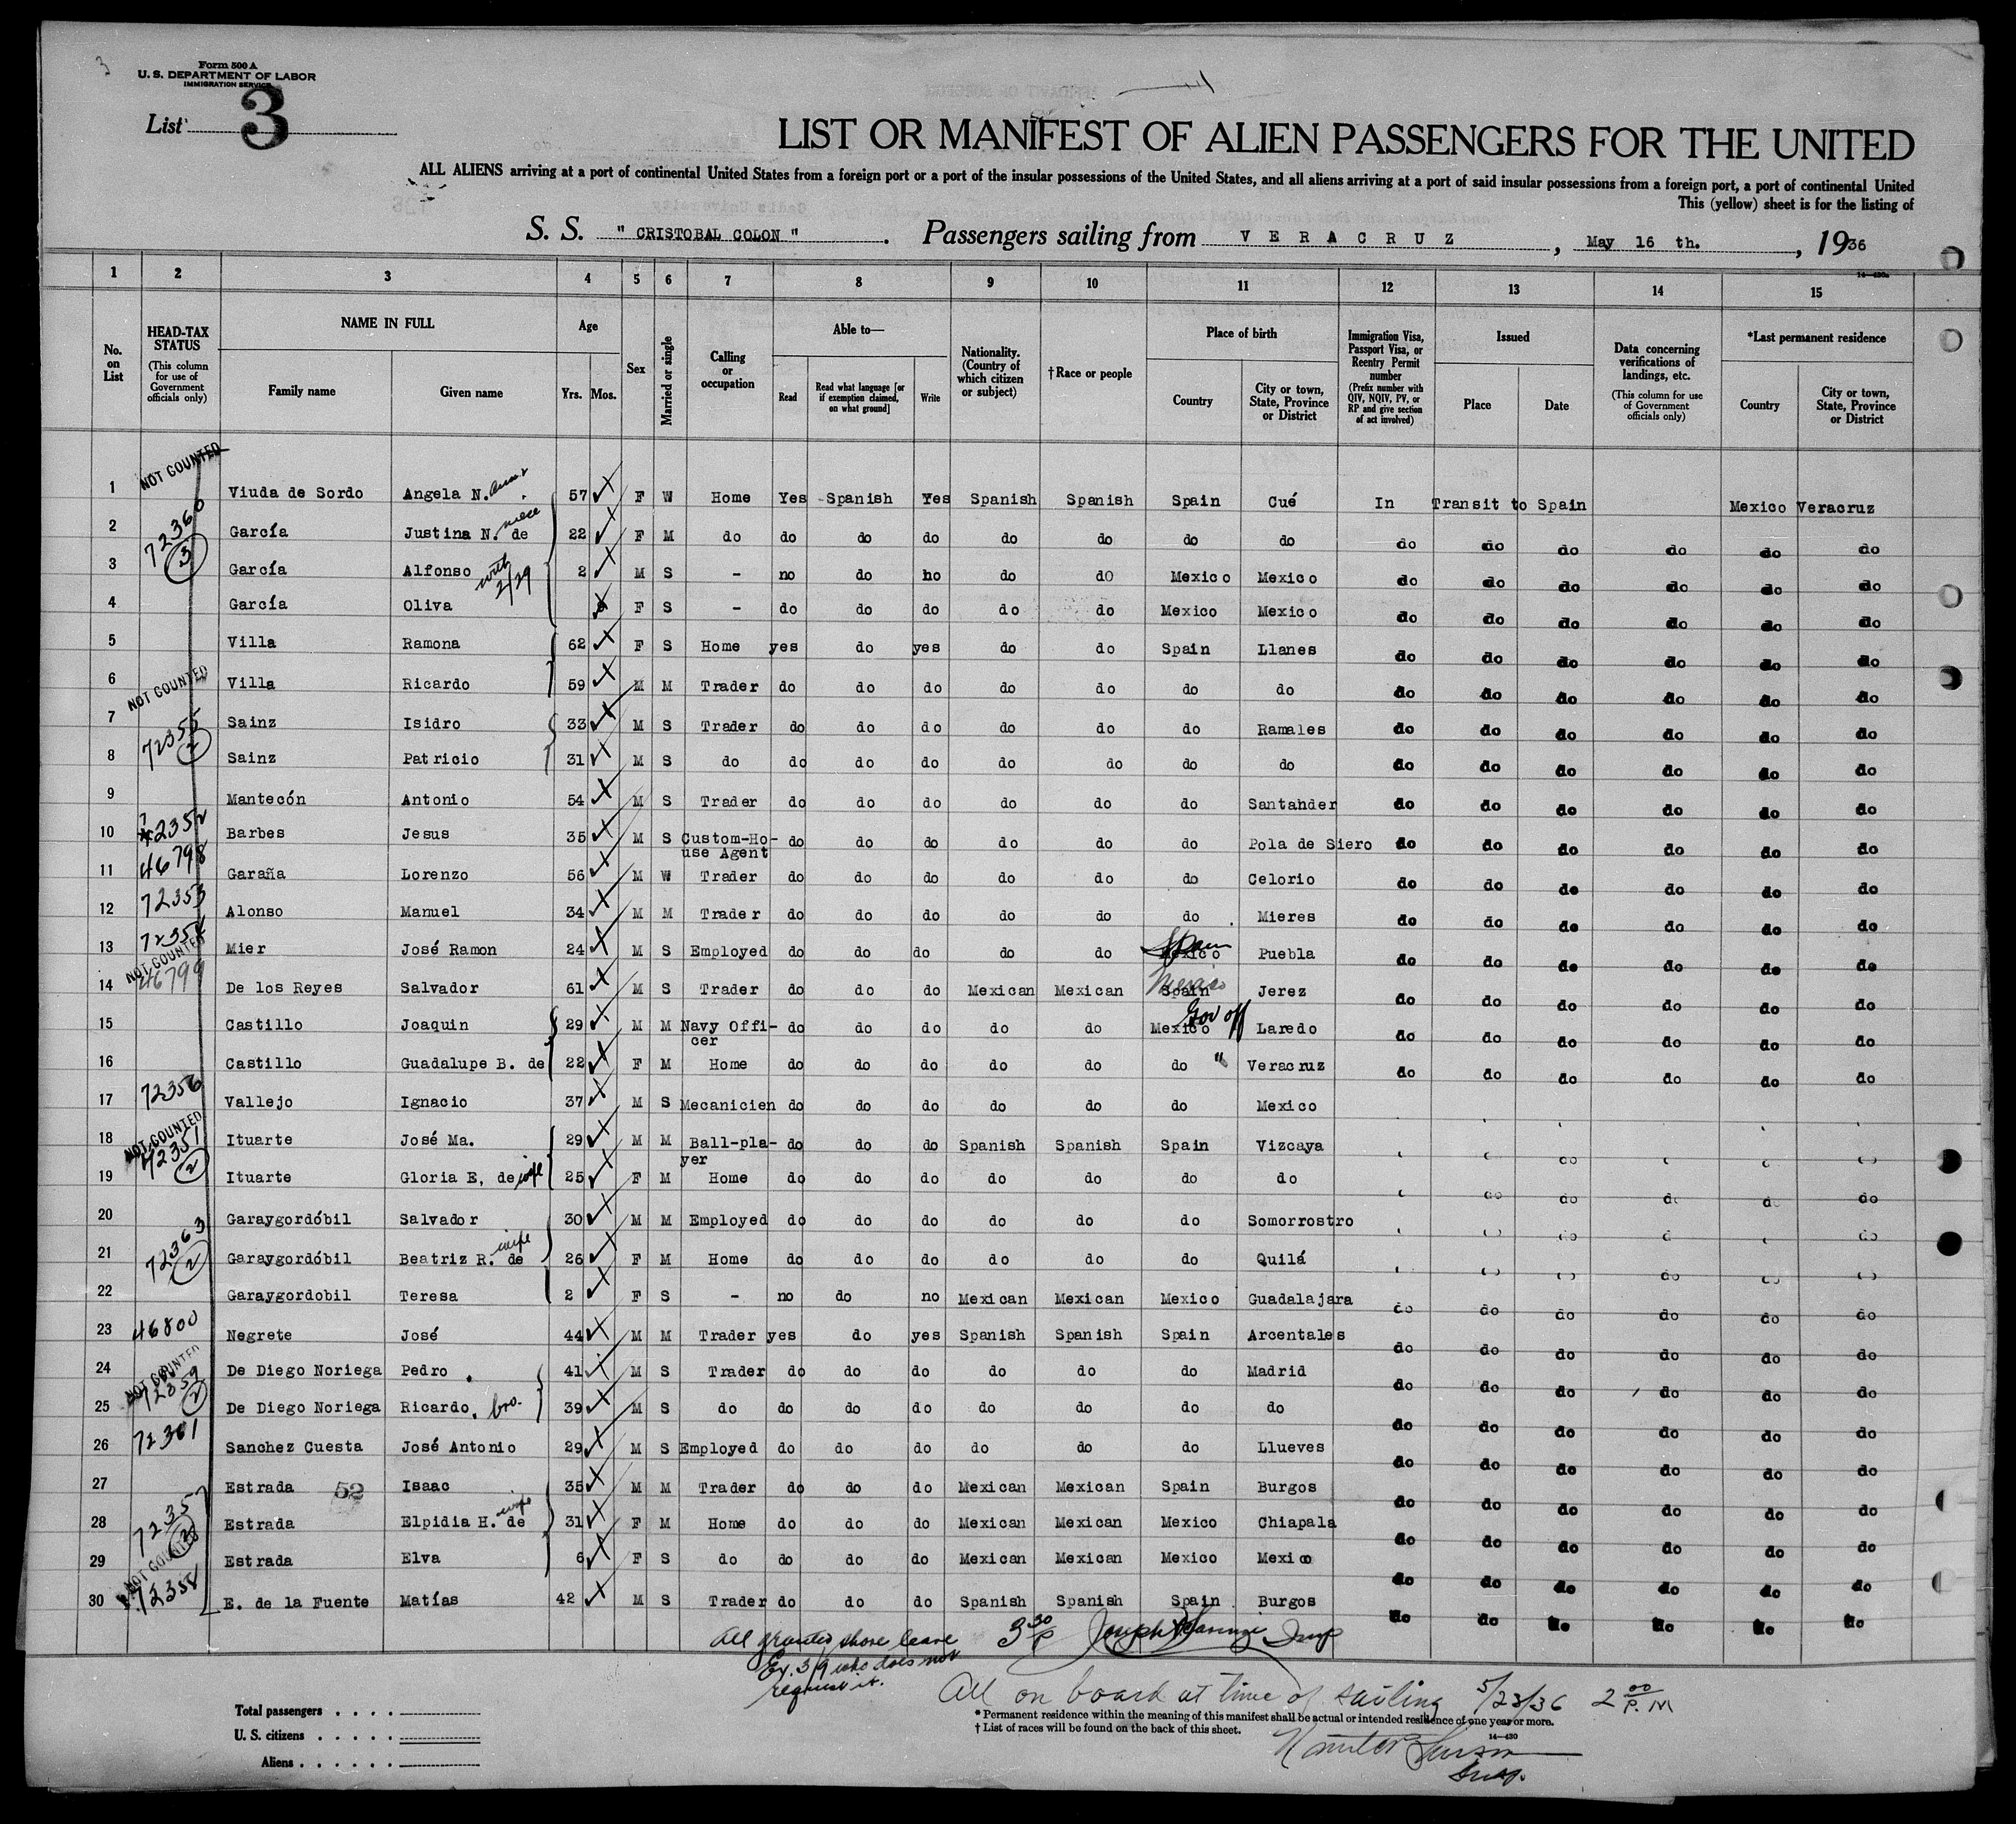 3
Form 500 A
U. S. DEPARTMENT OF LABOR
IMMIGRATION SERVICE
List 3
LIST OR MANIFEST OF ALIEN PASSENGERS FOR THE UNITED
ALL ALIENS arriving at a port of continental United States from a foreign port or a port of the insular possessions of the United States, and all aliens arriving at a port of said insular possessions from a foreign port, a port of continental United
This (yellow) sheet is for the listing of
S. S. " CRISTOBAL COLON " . Passengers sailing from V E R A C R U Z , May 16 th. , 1936
14—430a
1 2 3 4 5 6 7 8 9 10 11 12 13 14 15
No. on List
HEAD-TAX STATUS
(This column for use of Government officials only)
NAME IN FULL
Family name Given name
Age
Yrs. Mos.
Sex
Married or single
Calling or occupation
Able to—
Read Read what language [or if exemption claimed, on what ground] Write
Nationality. (Country of which citizen or subject)
†Race or people
Place of birth
Country City or town, State, Province or District
Immigration Visa, Passport Visa, or Reentry Permit number
(Prefix number with QIV, NQIV, PV, or RP and give section of act involved)
Issued
Place Date
Data concerning verifications of landings, etc.
(This column for use of Government officials only)
*Last permanent residence
Country City or town, State, Province or District
NOT COUNTED
1 Viuda de Sordo Angela N. 57 F W Home Yes Spanish Yes Spanish Spanish Spain Cué In Transit to Spain Mexico Veracruz
2 72360 García Justina N. de niece 22 F M do do do do do do do do do do do do do do
3 (3) García Alfonso with 2/29 2 M S - no do no do dO Mexico Mexico do do do do do do
4 García Oliva F S - do do do do do Mexico Mexico do do do do do do
5 Villa Ramona 62 F S Home yes do yes do do Spain Llanes do do do do do do
6 NOT COUNTED Villa Ricardo 59 M M Trader do do do do do do do do do do do do do
7 72355 Sainz Isidro 33 M S Trader do do do do do do Ramales do do do do do do
8 (2) Sainz Patricio 31 M S do do do do do do do do do do do do do do
9 Mantecón Antonio 54 M S Trader do do do do do do Santander do do do do do do
10 72352 Barbes Jesus 35 M S Custom-House Agent do do do do do do Pola de Siero do do do do do do
11 46798 Garaña Lorenzo 56 M W Trader do do do do do do Celorio do do do do do do
12 72353 Alonso Manuel 34 M M Trader do do do do do do Mieres do do do do do do
13 72354 Mier José Ramon 24 M S Employed do do do do do Mexico Spain Puebla do do do do do do
14 NOT COUNTED 46799 De los Reyes Salvador 61 M S Trader do do do Mexican Mexican Spain Mexico Jerez do do do do do do
15 Castillo Joaquin 29 M M Navy Officer do do do do do Mexico Gov off Laredo do do do do do do
16 Castillo Guadalupe B. de 22 F M Home do do do do do do " Veracruz do do do do do do
17 72356 Vallejo Ignacio 37 M S Mecanicien do do do do do do Mexico
18 NOT COUNTED 72351 Ituarte José Ma. 29 M M Ball-player do do do Spanish Spanish Spain Vizcaya
19 (2) Ituarte Gloria E, de wife 25 F M Home do do do do do do do do do do do do
20 Garaygordóbil Salvador 30 M M Employed do do do do do do Somorrostro
21 72363 (2) Garaygordóbil Beatriz R. de wife 26 F M Home do do do do do do Quilá
22 Garaygordobil Teresa 2 F S - no do no Mexican Mexican Mexico Guadalajara do do do do do do
23 46800 Negrete José 44 M M Trader yes do yes Spanish Spanish Spain Arcentales do do do do do do
24 NOT COUNTED 72359 De Diego Noriega Pedro 41 M S Trader do do do do do do Madrid do do do do do do
25 (2) De Diego Noriega Ricardo, bro. 39 M S do do do do do do do do do do do do do do
26 72361 Sanchez Cuesta José Antonio 29 M S Employed do do do do do do Llueves do do do do do do
27 Estrada 52 Isaac 35 M M Trader do do do Mexican Mexican Spain Burgos do do do do do do
28 7235 Estrada Elpidia H. de wife 31 F M Home do do do Mexican Mexican Mexico Chiapala do do do do do do
29 NOT COUNTED Estrada Elva 6 F S do do do do Mexican Mexican Mexico Mexico do do do do do do
30 72358 E. de la Fuente Matías 42 M S Trader do do do Spanish Spanish Spain Burgos do do do do do do
All granted shore leave 3 30 P Joseph Insp
Ex. 3/9 who does not
request it.
All on board at time of sailing 5/23/36 2 00 P. M
* Permanent residence within the meaning of this manifest shall be actual or intended residence of one year or more.
† List of races will be found on the back of this sheet.
14—430
Insp.
Total passengers
U. S. citizens
Aliens